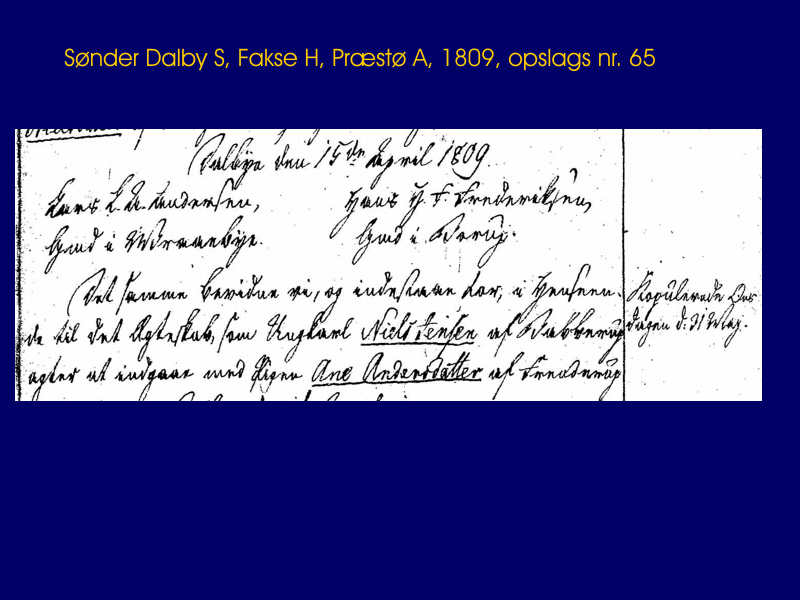 Sønder Dalby S, Fakse H, Præstø A, 1809, opslags nr. 65
Dalbye den 15de April 1809
Lars L. A. Andersen,
Hans H. F. Frederiksen,
Gmd i
Gmd i
Det samme bevidne vi, og indestaae for, i Henseen-
de til det Ægteskab, som Ungkarl Niels Jensen af
agter at indgaae med Pigen Ane Andersdatter af
Kopulerede Ons
dagen d: 31 May.